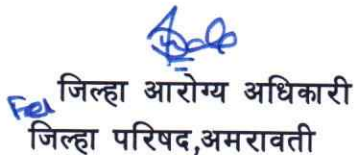 For जिल्हा आरोग्य अधिकारी
जिल्हा परिषद,अमरावती